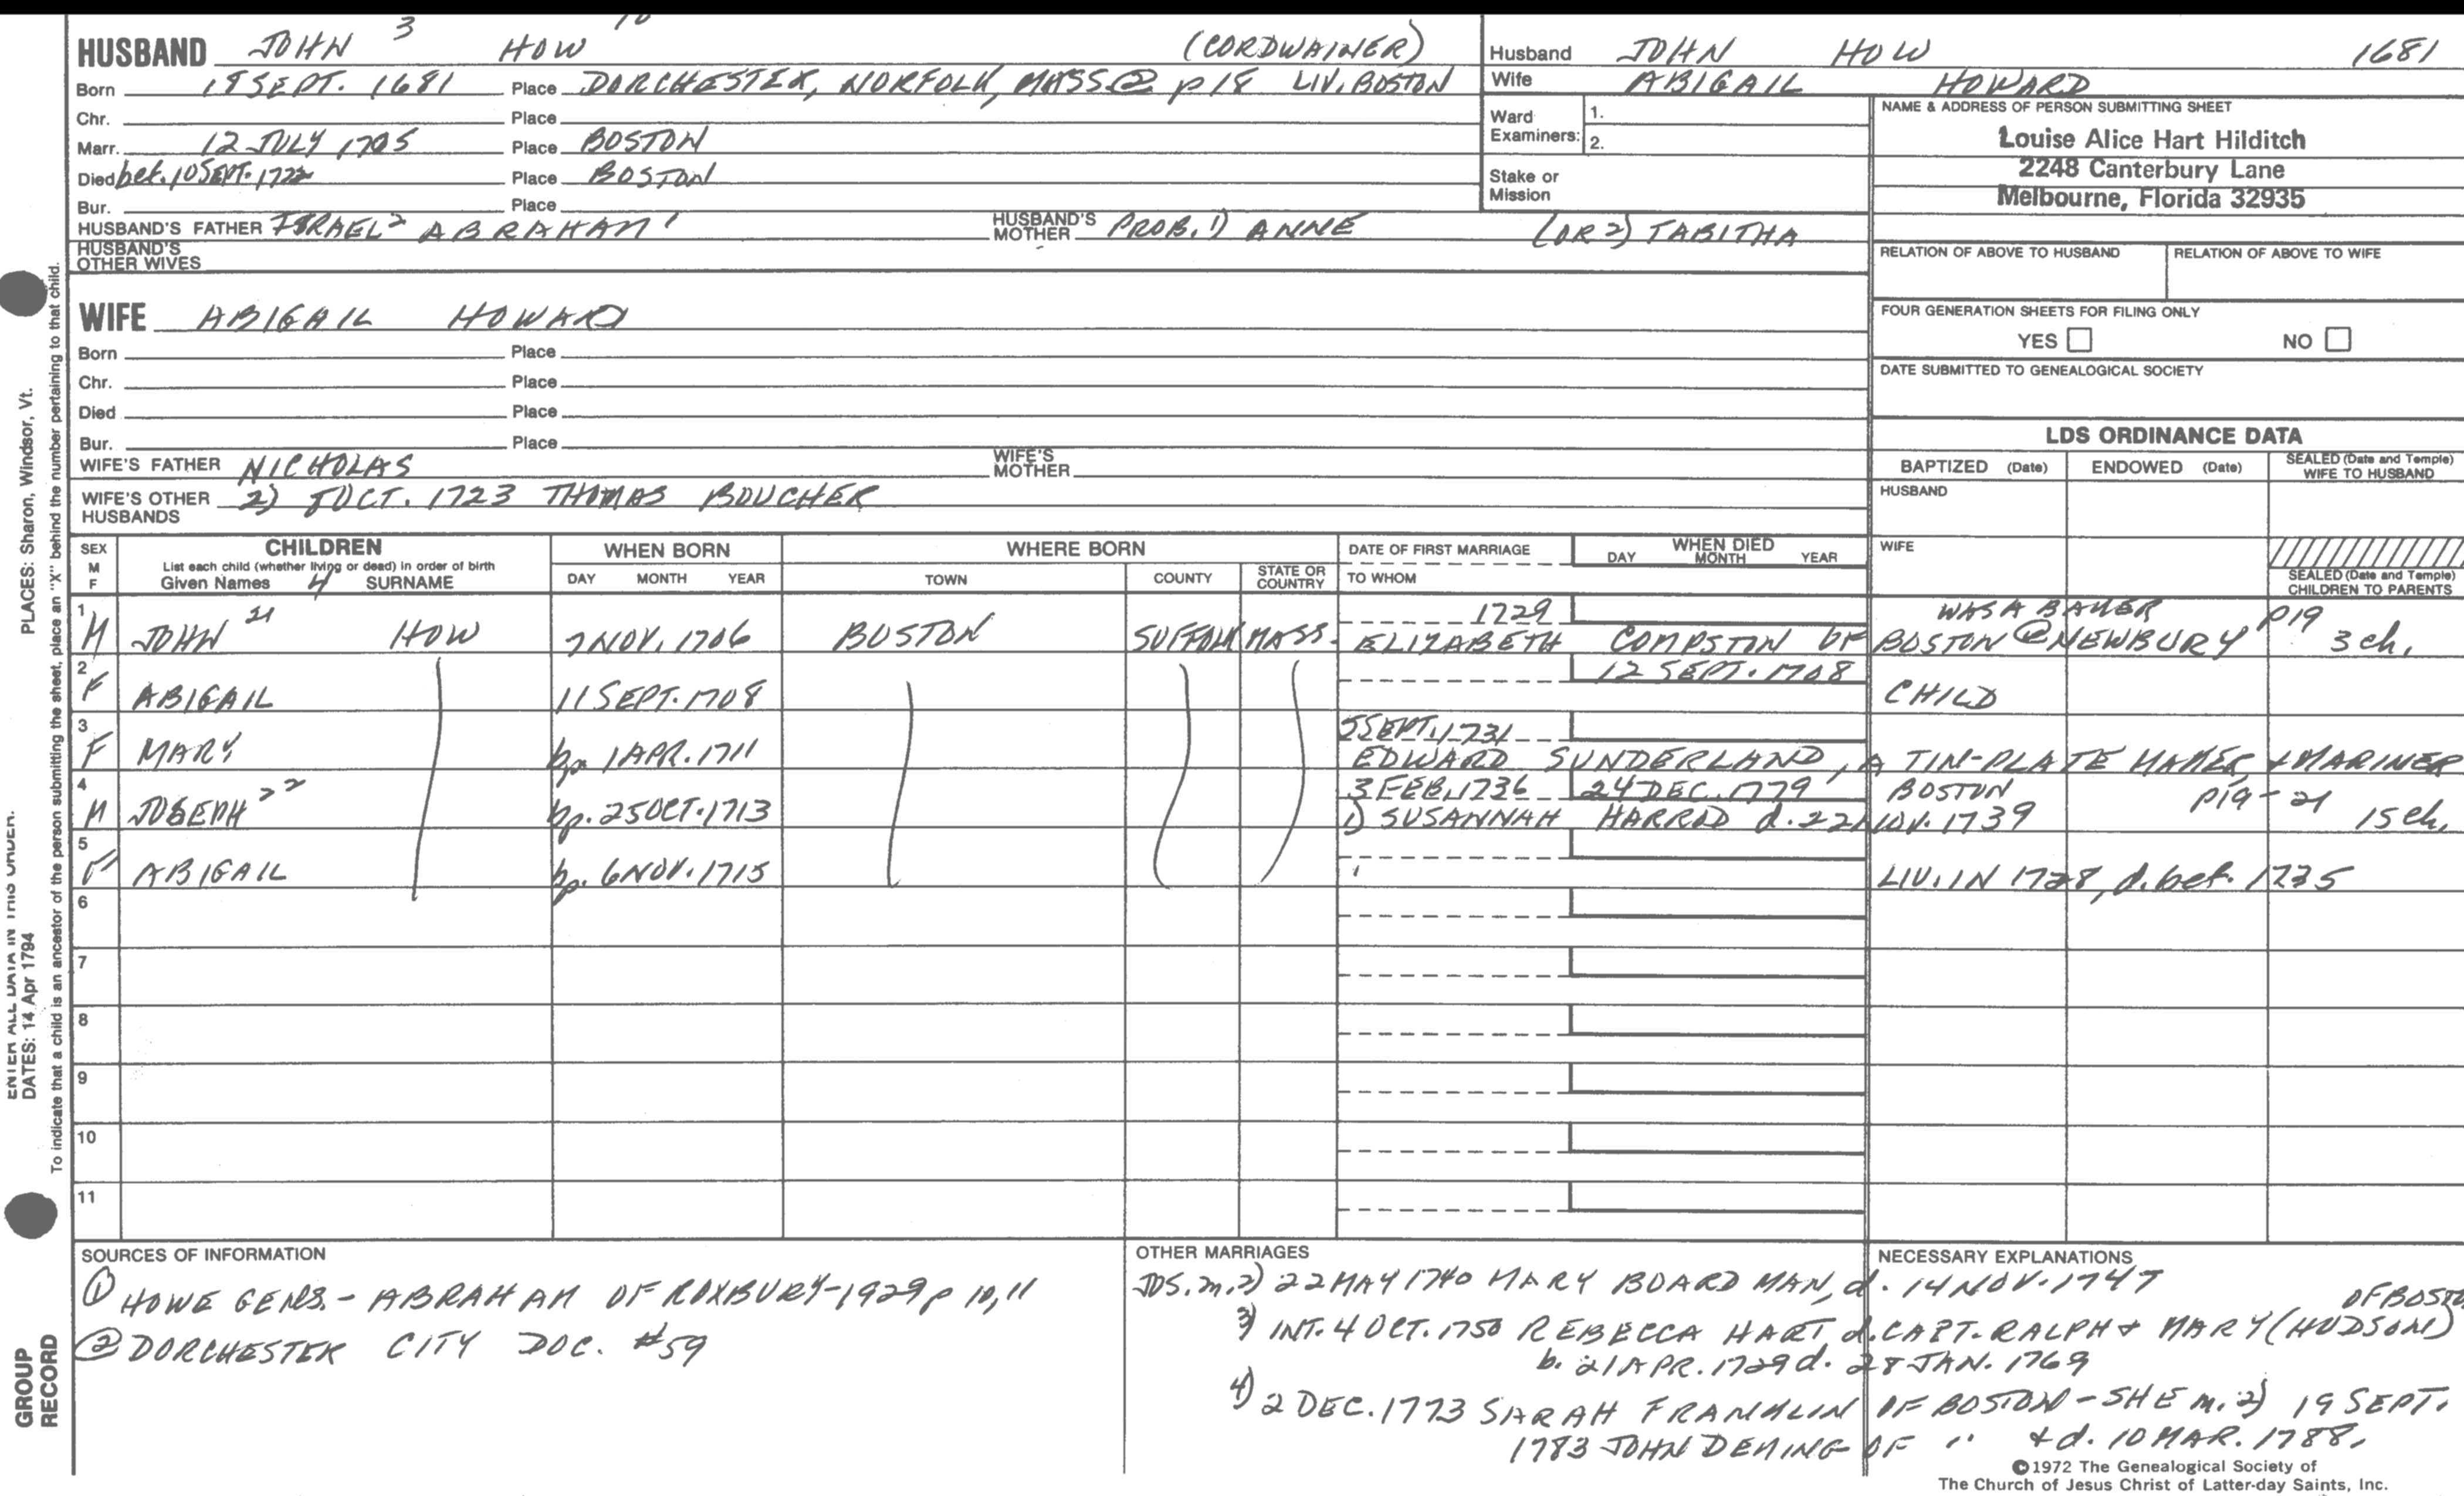 HUSBAND JOHN 3 HOW (CORDWAINER)
Born 18 SEPT. 1681 Place DORCHESTER, NORFOLK, MASS② p 18 LIV. BOSTON
Chr. Place
Marr. 12 JULY 1705 Place BOSTON
Died bef. 10 SEPT. 1722 Place BOSTON
Bur. Place
HUSBAND'S FATHER ISRAEL 2 ABRAHAM 1 HUSBAND'S MOTHER PROB. 1) ANNE (OR 2) TABITHA
HUSBAND'S OTHER WIVES
Husband JOHN HOW 1681
Wife ABIGAIL HOWARD
Ward Examiners: 1.
2.
Stake or Mission
NAME & ADDRESS OF PERSON SUBMITTING SHEET
Louise Alice Hart Hilditch
2248 Canterbury Lane
Melbourne, Florida 32935
RELATION OF ABOVE TO HUSBAND RELATION OF ABOVE TO WIFE
FOUR GENERATION SHEETS FOR FILING ONLY
YES NO
DATE SUBMITTED TO GENEALOGICAL SOCIETY
WIFE ABIGAIL HOWARD
Born Place
Chr. Place
Died Place
Bur. Place
WIFE'S FATHER NICHOLAS WIFE'S MOTHER
WIFE'S OTHER HUSBANDS 2) OCT. 1723 THOMAS BOUCHER
LDS ORDINANCE DATA
BAPTIZED (Date) ENDOWED (Date) SEALED (Date and Temple) WIFE TO HUSBAND
HUSBAND
WIFE
SEALED (Date and Temple) CHILDREN TO PARENTS
SEX M F
CHILDREN
List each child (whether living or dead) in order of birth
Given Names 4 SURNAME
WHEN BORN
DAY MONTH YEAR
WHERE BORN
TOWN COUNTY STATE OR COUNTRY
DATE OF FIRST MARRIAGE
TO WHOM
WHEN DIED
DAY MONTH YEAR
1 1729 WAS A BAKER p19
M JOHN 21 HOW 7 NOV. 1706 BOSTON SUFFOLK MASS. ELIZABETH COMPSTON OF BOSTON @ NEWBURY 3 ch.
2 12 SEPT. 1708
F ABIGAIL 11 SEPT. 1708 CHILD
3 5 SEPT. 1731
F MARY bp 1 APR. 1711 EDWARD SUNDERLAND, A TIN-PLATE MAKER, + MARINER
4 3 FEB. 1736 24 DEC. 1779 BOSTON p19-21
M JOSEPH 22 bp. 25 OCT. 1713 1) SUSANNAH HARROD d. 22 NOV. 1739 15 ch.
5
F ABIGAIL bp. 6 NOV. 1715 LIV. IN 1728, d. bef. 1735
6
7
8
9
10
11
SOURCES OF INFORMATION
① HOWE GENS. - ABRAHAM OF ROXBURY - 1929 p 10, 11
② DORCHESTER CITY DOC. #59
OTHER MARRIAGES
NECESSARY EXPLANATIONS
JOS. m. 2) 22 MAY 1740 MARY BOARDMAN, d. 14 NOV. 1747
3) INT. 4 OCT. 1750 REBECCA HART, d. CAPT. RALPH + MARY (HUDSON) OF BOSTO
b. 21 APR. 1729 d. 28 JAN. 1769
4) 2 DEC. 1773 SARAH FRANKLIN OF BOSTON - SHE m. 2) 19 SEPT.
1783 JOHN DEMING OF " + d. 10 MAR. 1788.
©1972 The Genealogical Society of
The Church of Jesus Christ of Latter-day Saints, Inc.
PLACES: Sharon, Windsor, Vt.
To indicate that a child is an ancestor of the person submitting the sheet, place an "X" behind the number pertaining to that child.
ENTER ALL DATA IN THIS ORDER:
DATES: 14 Apr 1794
GROUP
RECORD